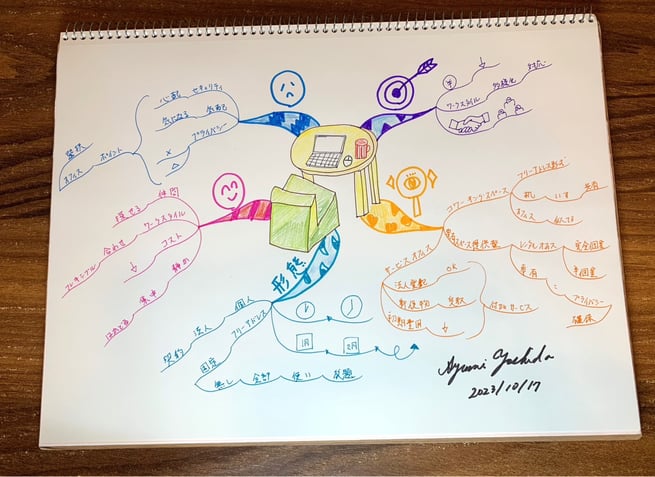 心配
セキュリティ
気になる
気配
プライバシー
×
△
ポイント
オフィス
ワークスタイル
多様化
対応
仲間
探せる
ワークスタイル
合わせ
フレキシブル
コスト
↓
静め
集中
コワーキングスペース
フリーアドレス形式
机
いす
共有
オフィス
サービスオフィス
レンタルオフィス
完全個室
半個室
専有
プライバシー
確保
法人登記
OK
郵便物
受取
初期費用
↓
付加サービス
形態
個人
法人
契約
フリーアドレス
固定
無し
全部
使い
放題
1月
2月
Ayumi Yoshida
2023/10/17